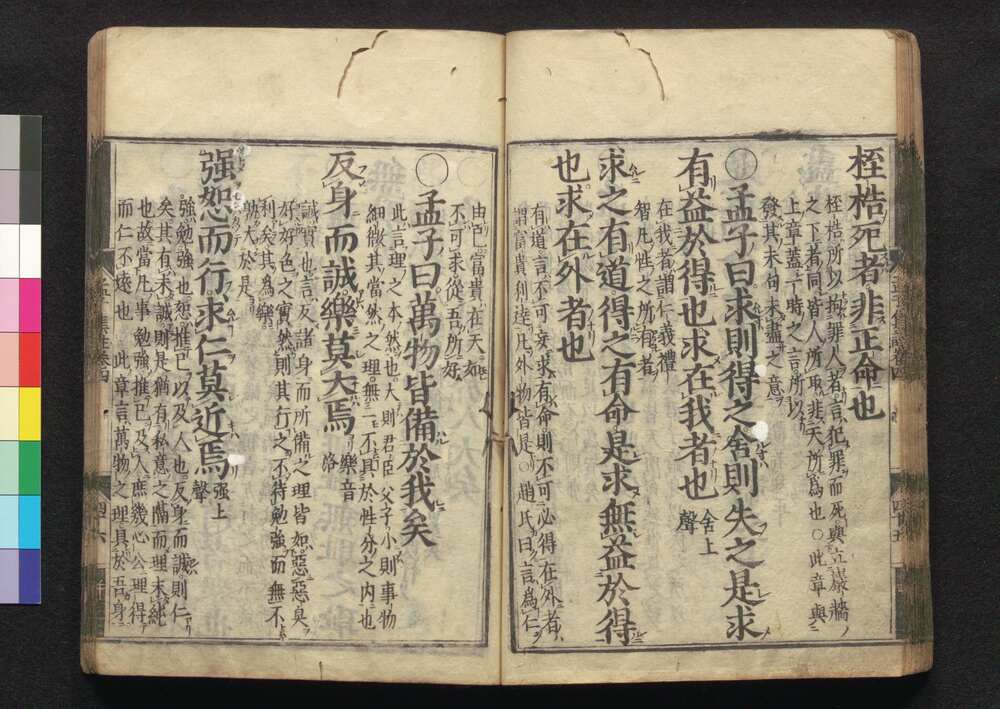 桎梏死者非正命也
桎梏所以拘罪人者言犯罪而死與立巖牆
之下者同皆人所取非天所爲也○此章與
上章蓋一時之言所以
發其末句未盡之意
孟子曰求則得之舍則失之是求
有益於得也求在我者也
舍上
聲
在我者謂仁義禮
智凡性之所有者
求之有道得之有命是求無益於得
也求在外者也
有道言不可妄求有命則不可必得在外者
謂富貴利達凡外物皆是○趙氏曰言爲仁
由己富貴在天如
不可求從吾所好
○孟子曰萬物皆備於我矣
此言理之本然也大則君臣父子小則事物
細微其當然之理無一不具於性分之内也
反身而誠樂莫大焉
樂音
洛
誠實也言反諸身而所備之理皆如惡惡臭
好好色之實然則其行之不待勉強而無不
利矣其爲樂
孰大於是
强恕而行求仁莫近焉
强上
聲
強勉強也恕推己以及人也反身而誠則仁
矣其有未誠則是猶有私意之隔而理未純
也故當凡事勉強推己及人庶幾心公理得
而仁不遠也 此章言萬物之理具於吾身